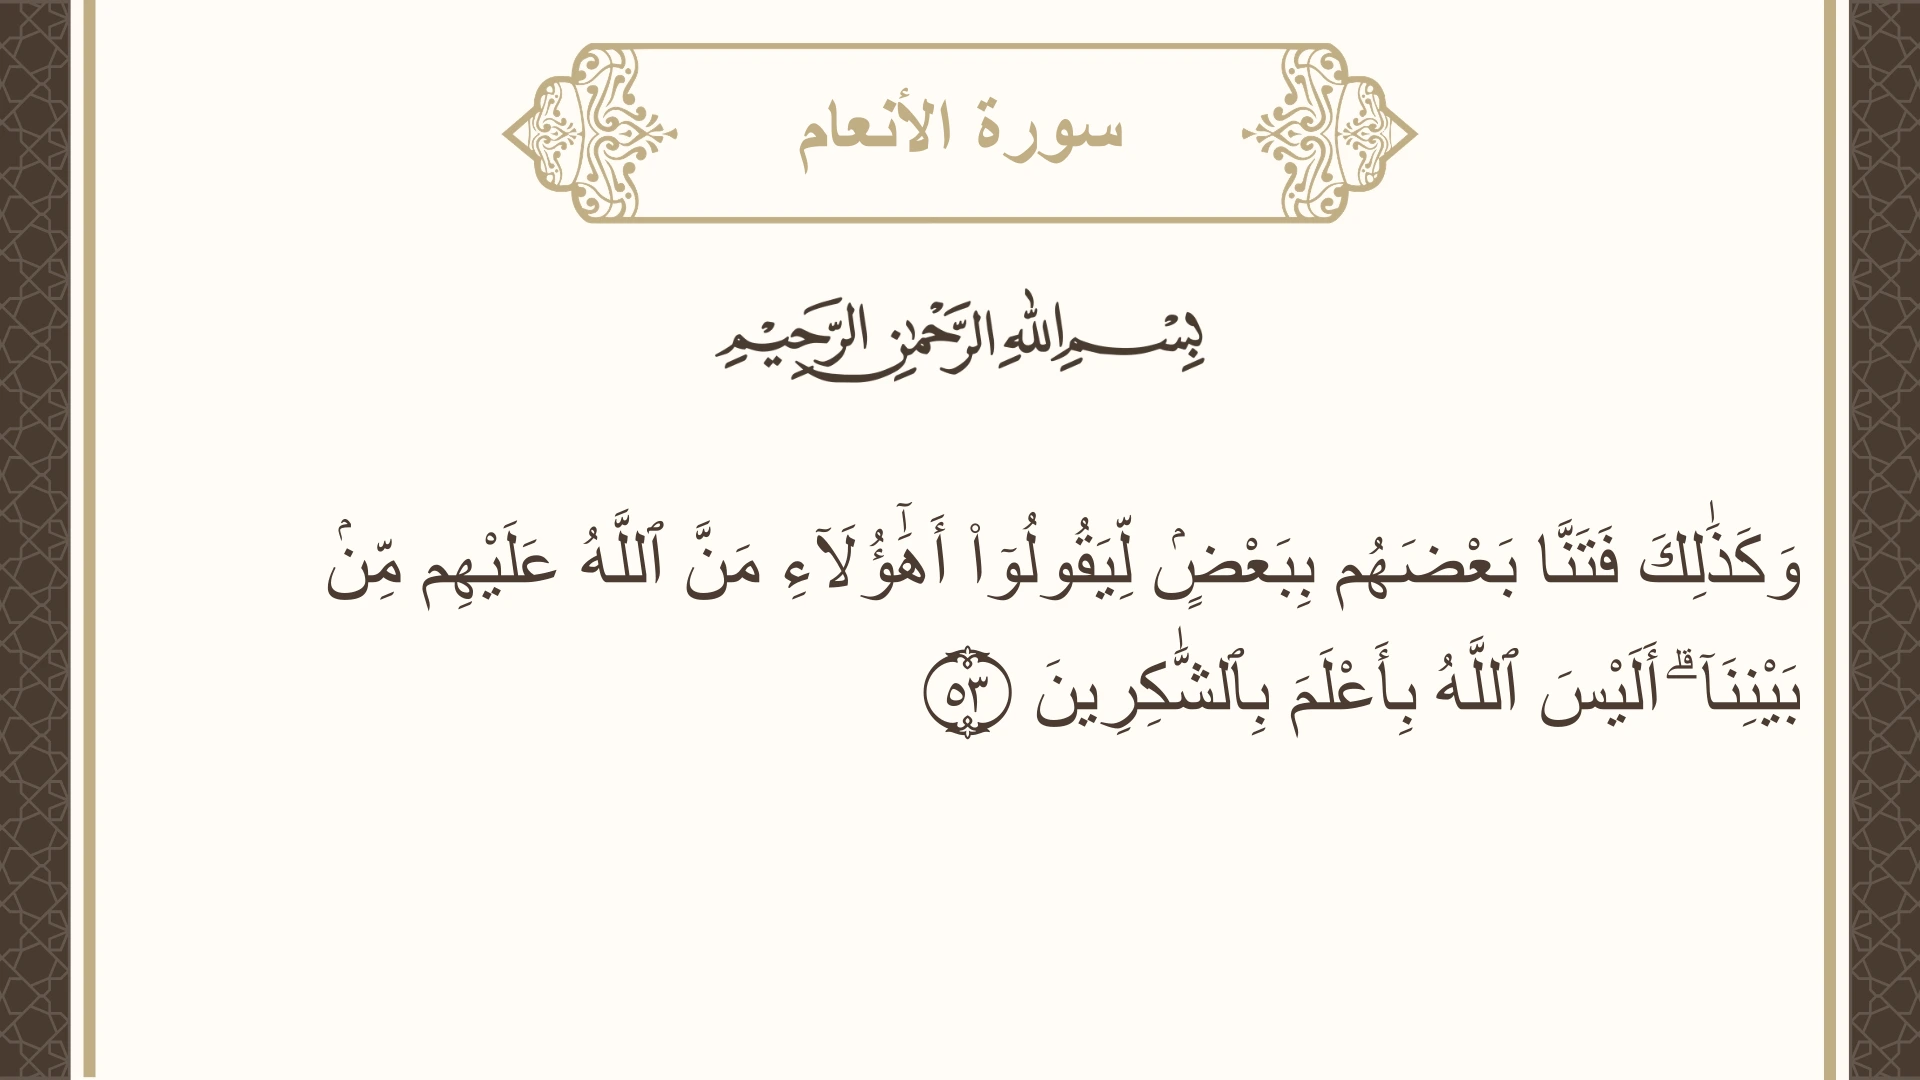 سورة الأنعام
بِسْمِ اللهِ الرَّحْمٰنِ الرَّحِيْمِ
وَكَذَٰلِكَ فَتَنَّا بَعْضَهُم بِبَعْضٍۢ لِّيَقُولُوٓا۟ أَهَٰٓؤُلَآءِ مَنَّ ٱللَّهُ عَلَيْهِم مِّنۢ
بَيْنِنَآ ۗ أَلَيْسَ ٱللَّهُ بِأَعْلَمَ بِٱلشَّٰكِرِينَ ٥٣